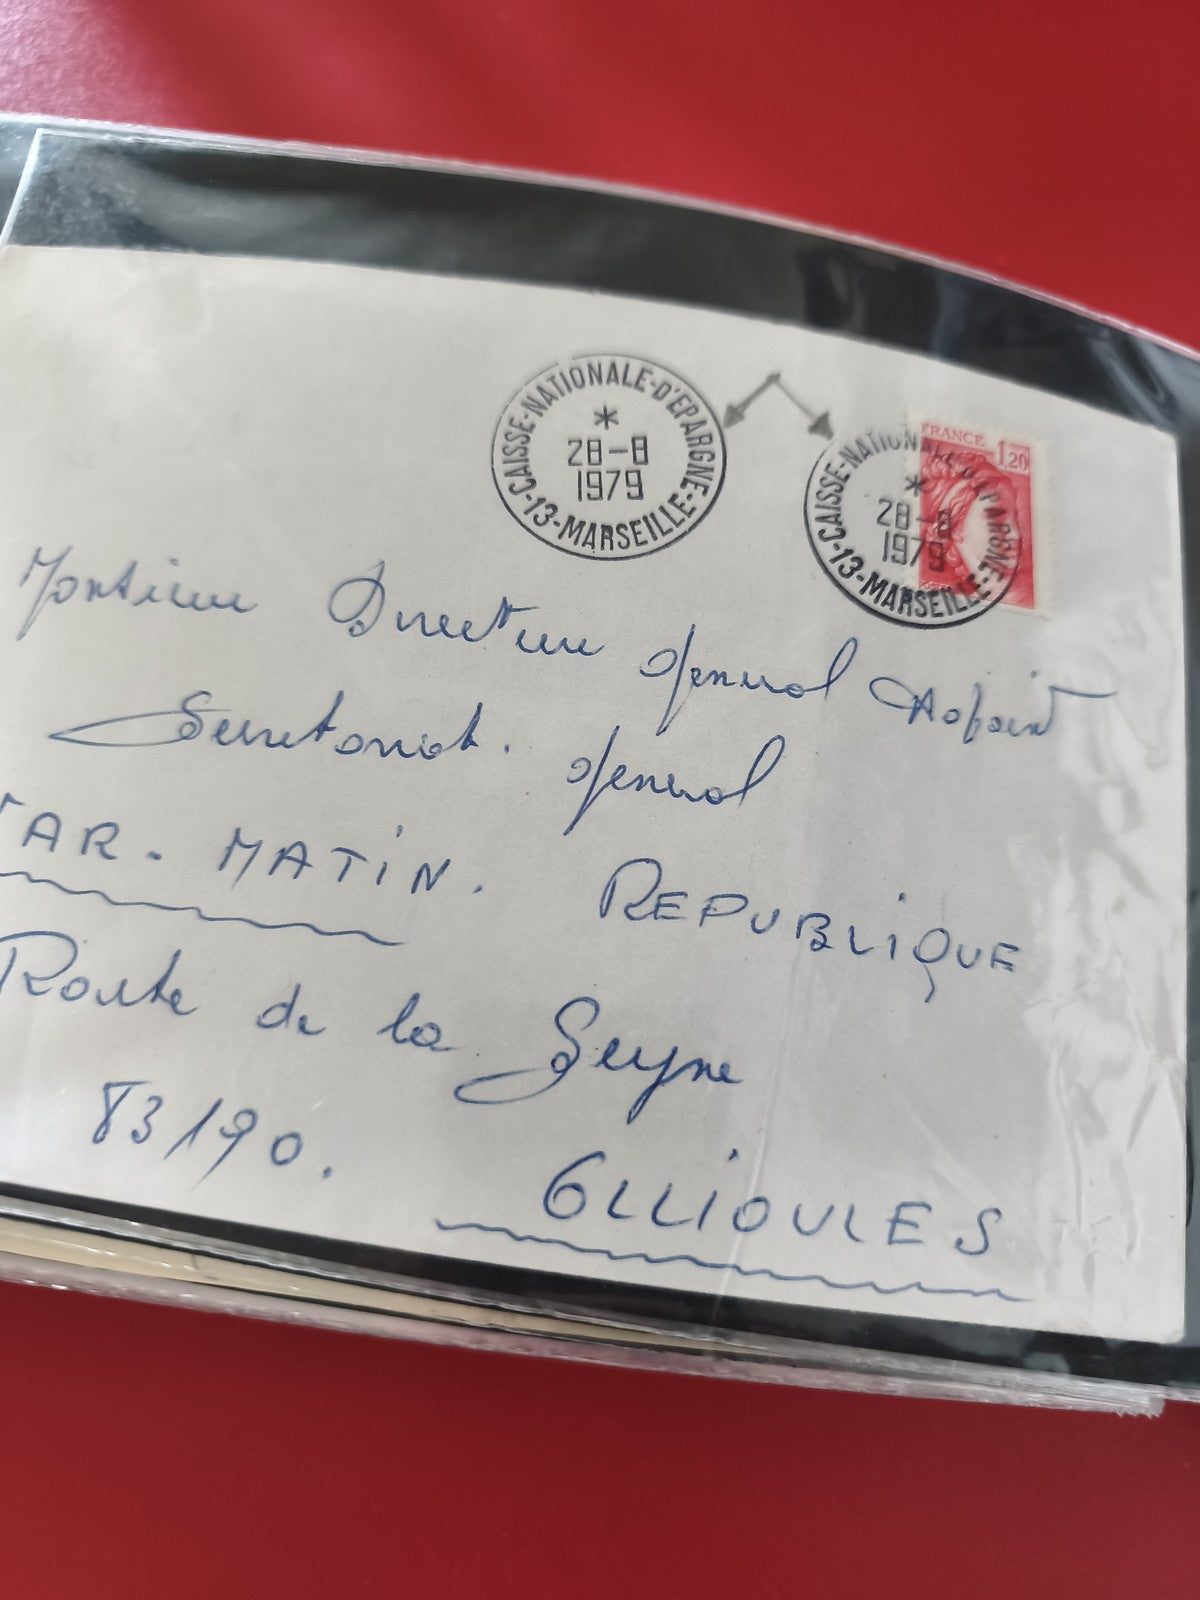 CAISSE-NATIONALE-D'EPARGNE-
28-8
1979
-13-MARSEILLE-
CAISSE-NATIONALE-D'EPARGNE-
28-8
1979
-13-MARSEILLE-
FRANCE
1,20
Monsieur Directeur General Adjoint
Secretariat. General
VAR. MATIN. REPUBLIQUE
Route de la Seyne
83190.
OLLIOULES